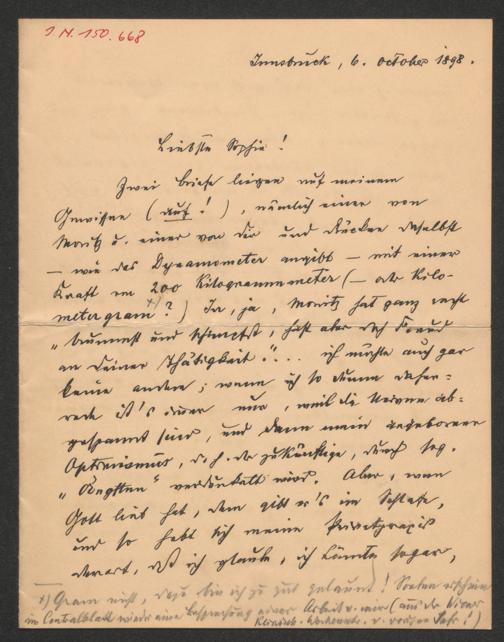 I.N. 150.668
Innsbruck, 6. October 1898.
Liebste Sophie!
Zwei Briefe liegen auf meinem
Gewissen (auf!), nämlich einer von
Moritz u. einer von Dir und drücken daselbst
– wie das Dynamometer angibt – mit einer
Kraft von 200 Kilogrammmeter (– oder Kilo-
metergram x)?) Ja, ja, Moritz hat ganz recht
"brummst und schimpfst, hast aber doch Freud
an Deiner Thätigkeit"... ich möchte auch gar
keine andere; wenn ich so dumm daher-
rede ist's immer nur, weil die Nerven ab-
gespannt sind, und dann mein angeborener
Optimismus, d. h. der zukünftige, durch sog.
verdunkelt wird. Aber, wen
Gott lieb hat, dem gibt er's im Schlafe,
und so hebt sich meine Privatpraxis
derart, daß ich glaube, ich könnte sogar,
x) Gram nicht, dazu bin ich zu gut gelaunt! Soeben erschien
im Centralblatt wieder eine Besprechung einer Arbeit v. mir (aus der Wiener
Klinisch. Wochenschr. v. vorigen Jahr!)